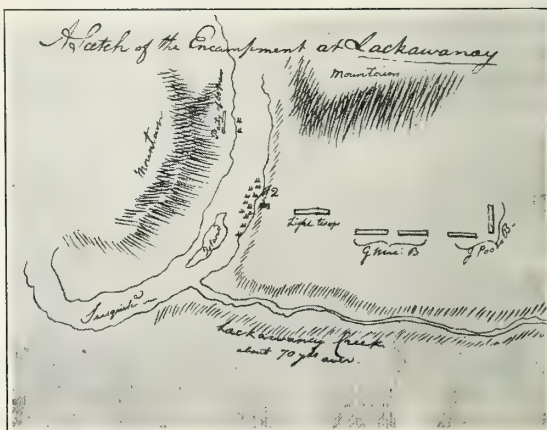 A Scetch of the Encampment at Lackawanay
Mountain
Mountain
Party of
Island
H2
Light troops
G Mxe: B
G Poor's B.
Susqueh'a
Lackawaney Creek
about 70 yds over.